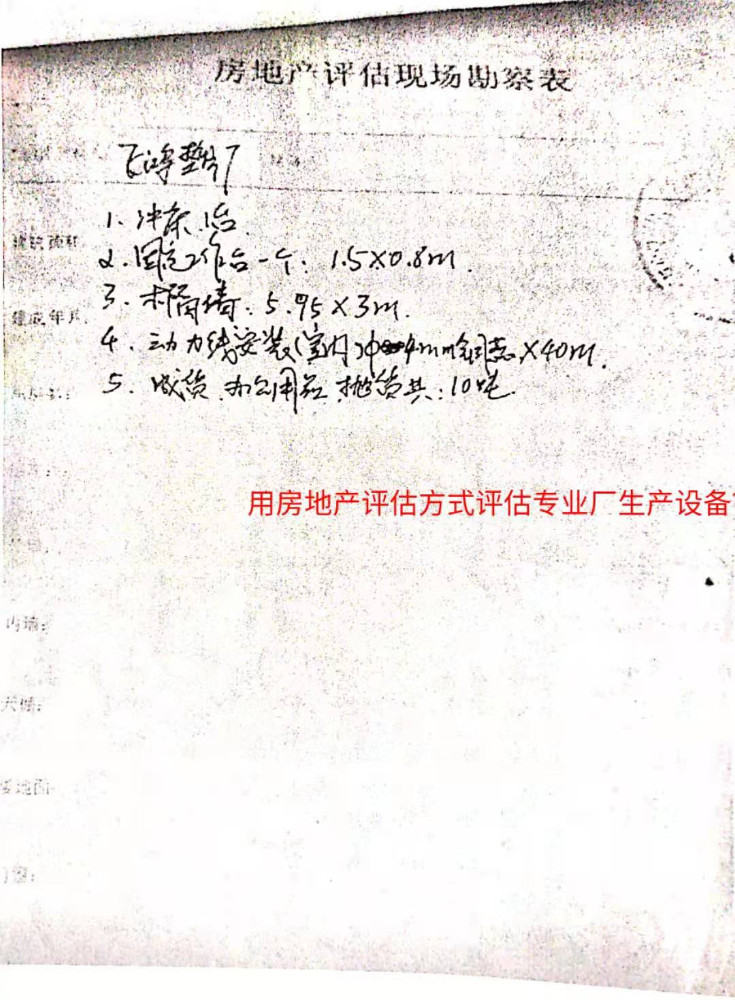 房地产评估现场勘察表
飞鸿塑料厂
1. 冲床 1台.
建筑面积
2. 固定工作台一个: 1.5×0.8m.
3. 木隔墙: 5.95×3m.
建成年月
4. 动力线安装(室内) 4mm ×40m.
5. 成货 办公用品 抛货共: 10吨.
用房地产评估方式评估专业厂生产设备
内墙:
天棚:
地面